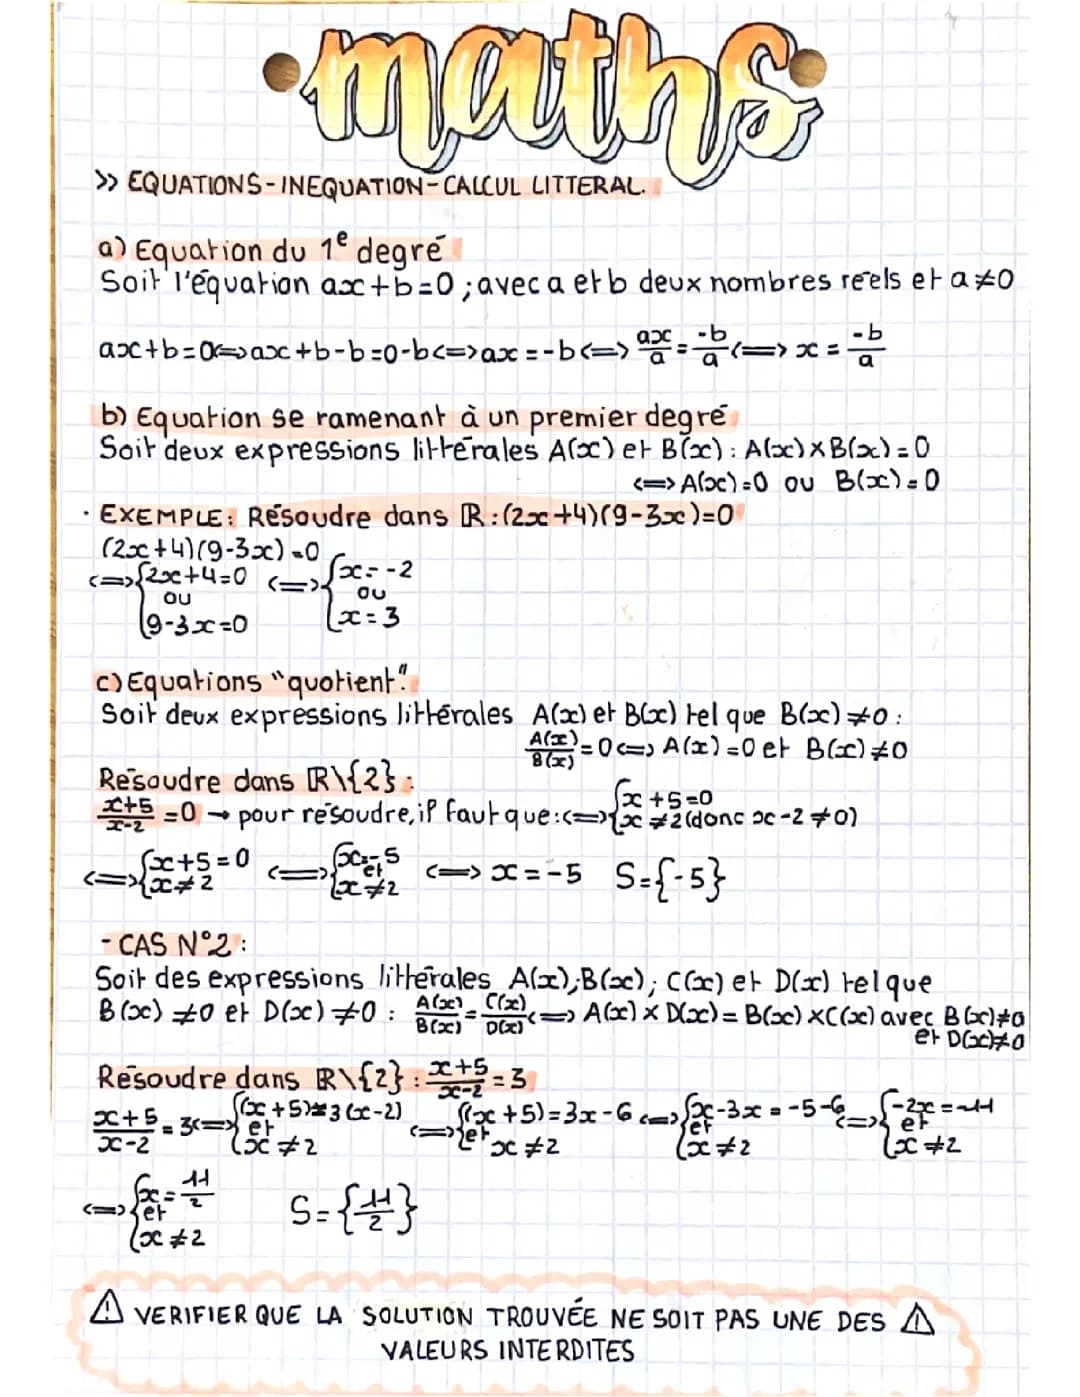 maths
>> EQUATIONS-INEQUATION-CALCUL LITTERAL.
a) Equation du 1e degré
Soit l'équation ax+b=0; avec a et b deux nombres réels et a≠0
ax+b=0<=>ax+b-b=0-b<=>ax=-b<=> ax/a = -b/a <=> x = -b/a
b) Equation se ramenant à un premier degré
Soit deux expressions littérales A(x) et B(x) : A(x)×B(x)=0
<=> A(x)=0 ou B(x)=0
· EXEMPLE: Résoudre dans ℝ:(2x+4)(9-3x)=0
(2x+4)(9-3x)=0
<=>{2x+4=0 <=>{x=-2
ou ou
9-3x=0 x=3
c) Equations "quotient".
Soit deux expressions littérales A(x) et B(x) tel que B(x)≠0 :
A(x)/B(x)=0<=> A(x)=0 et B(x)≠0
Résoudre dans ℝ\{2} :
x+5/x-2 =0 → pour résoudre, il faut que:<=>{x+5=0
x≠2(donc x-2≠0)
<=>{x+5=0 <=>{x=-5 <=> x=-5 S={-5}
x≠2 et x≠2
- CAS N°2 :
Soit des expressions littérales A(x);B(x); C(x) et D(x) tel que
B(x)≠0 et D(x)≠0 : A(x)/B(x) = C(x)/D(x) <=> A(x)×D(x)=B(x)×C(x) avec B(x)≠0
et D(x)≠0
Résoudre dans ℝ\{2} : x+5/x-2 =3
x+5/x-2 =3<=>{(x+5)=3(x-2) <=>{(x+5)=3x-6 <=>{x-3x=-5-6 <=>{-2x=-11
et et et et
x≠2 x≠2 x≠2 x≠2
<=>{x=11/2 S={11/2}
et
x≠2
⚠ VERIFIER QUE LA SOLUTION TROUVÉE NE SOIT PAS UNE DES ⚠
VALEURS INTERDITES